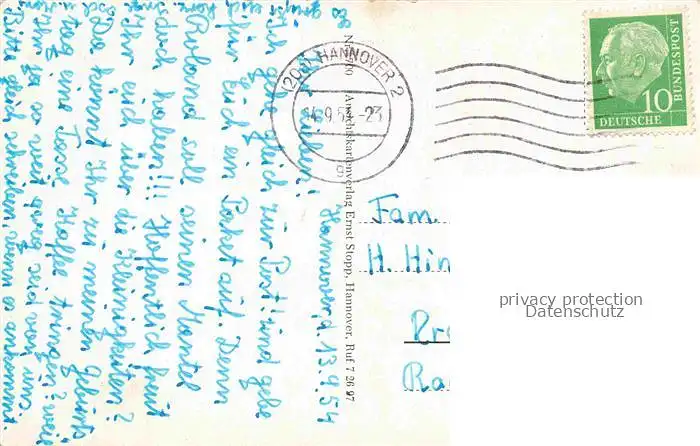 Hannover, d. 13.9.54
Ihr Lieben!
Ich gehe gleich zur Post und gebe
für Euch ein Paket auf. Denn
Roland soll seinen Mantel
doch haben!!! Hoffentlich freut
Ihr Euch über die Kleinigkeiten?
Da kommt Ihr zu meinem Geburts
tag eine Tasse Kaffee trinken? weil
Ihr ja so weit weg seid von uns.
Bitte gleich schreiben, wenn es ankommt.
Es grüßt Euch
Ansichtskartenverlag Ernst Stopp, Hannover, Ruf 7 26 97
(20a) HANNOVER 2
14.9.54.-23
g
DEUTSCHE
BUNDESPOST
10
Fam.
H. Hin
privacy protection
Datenschutz